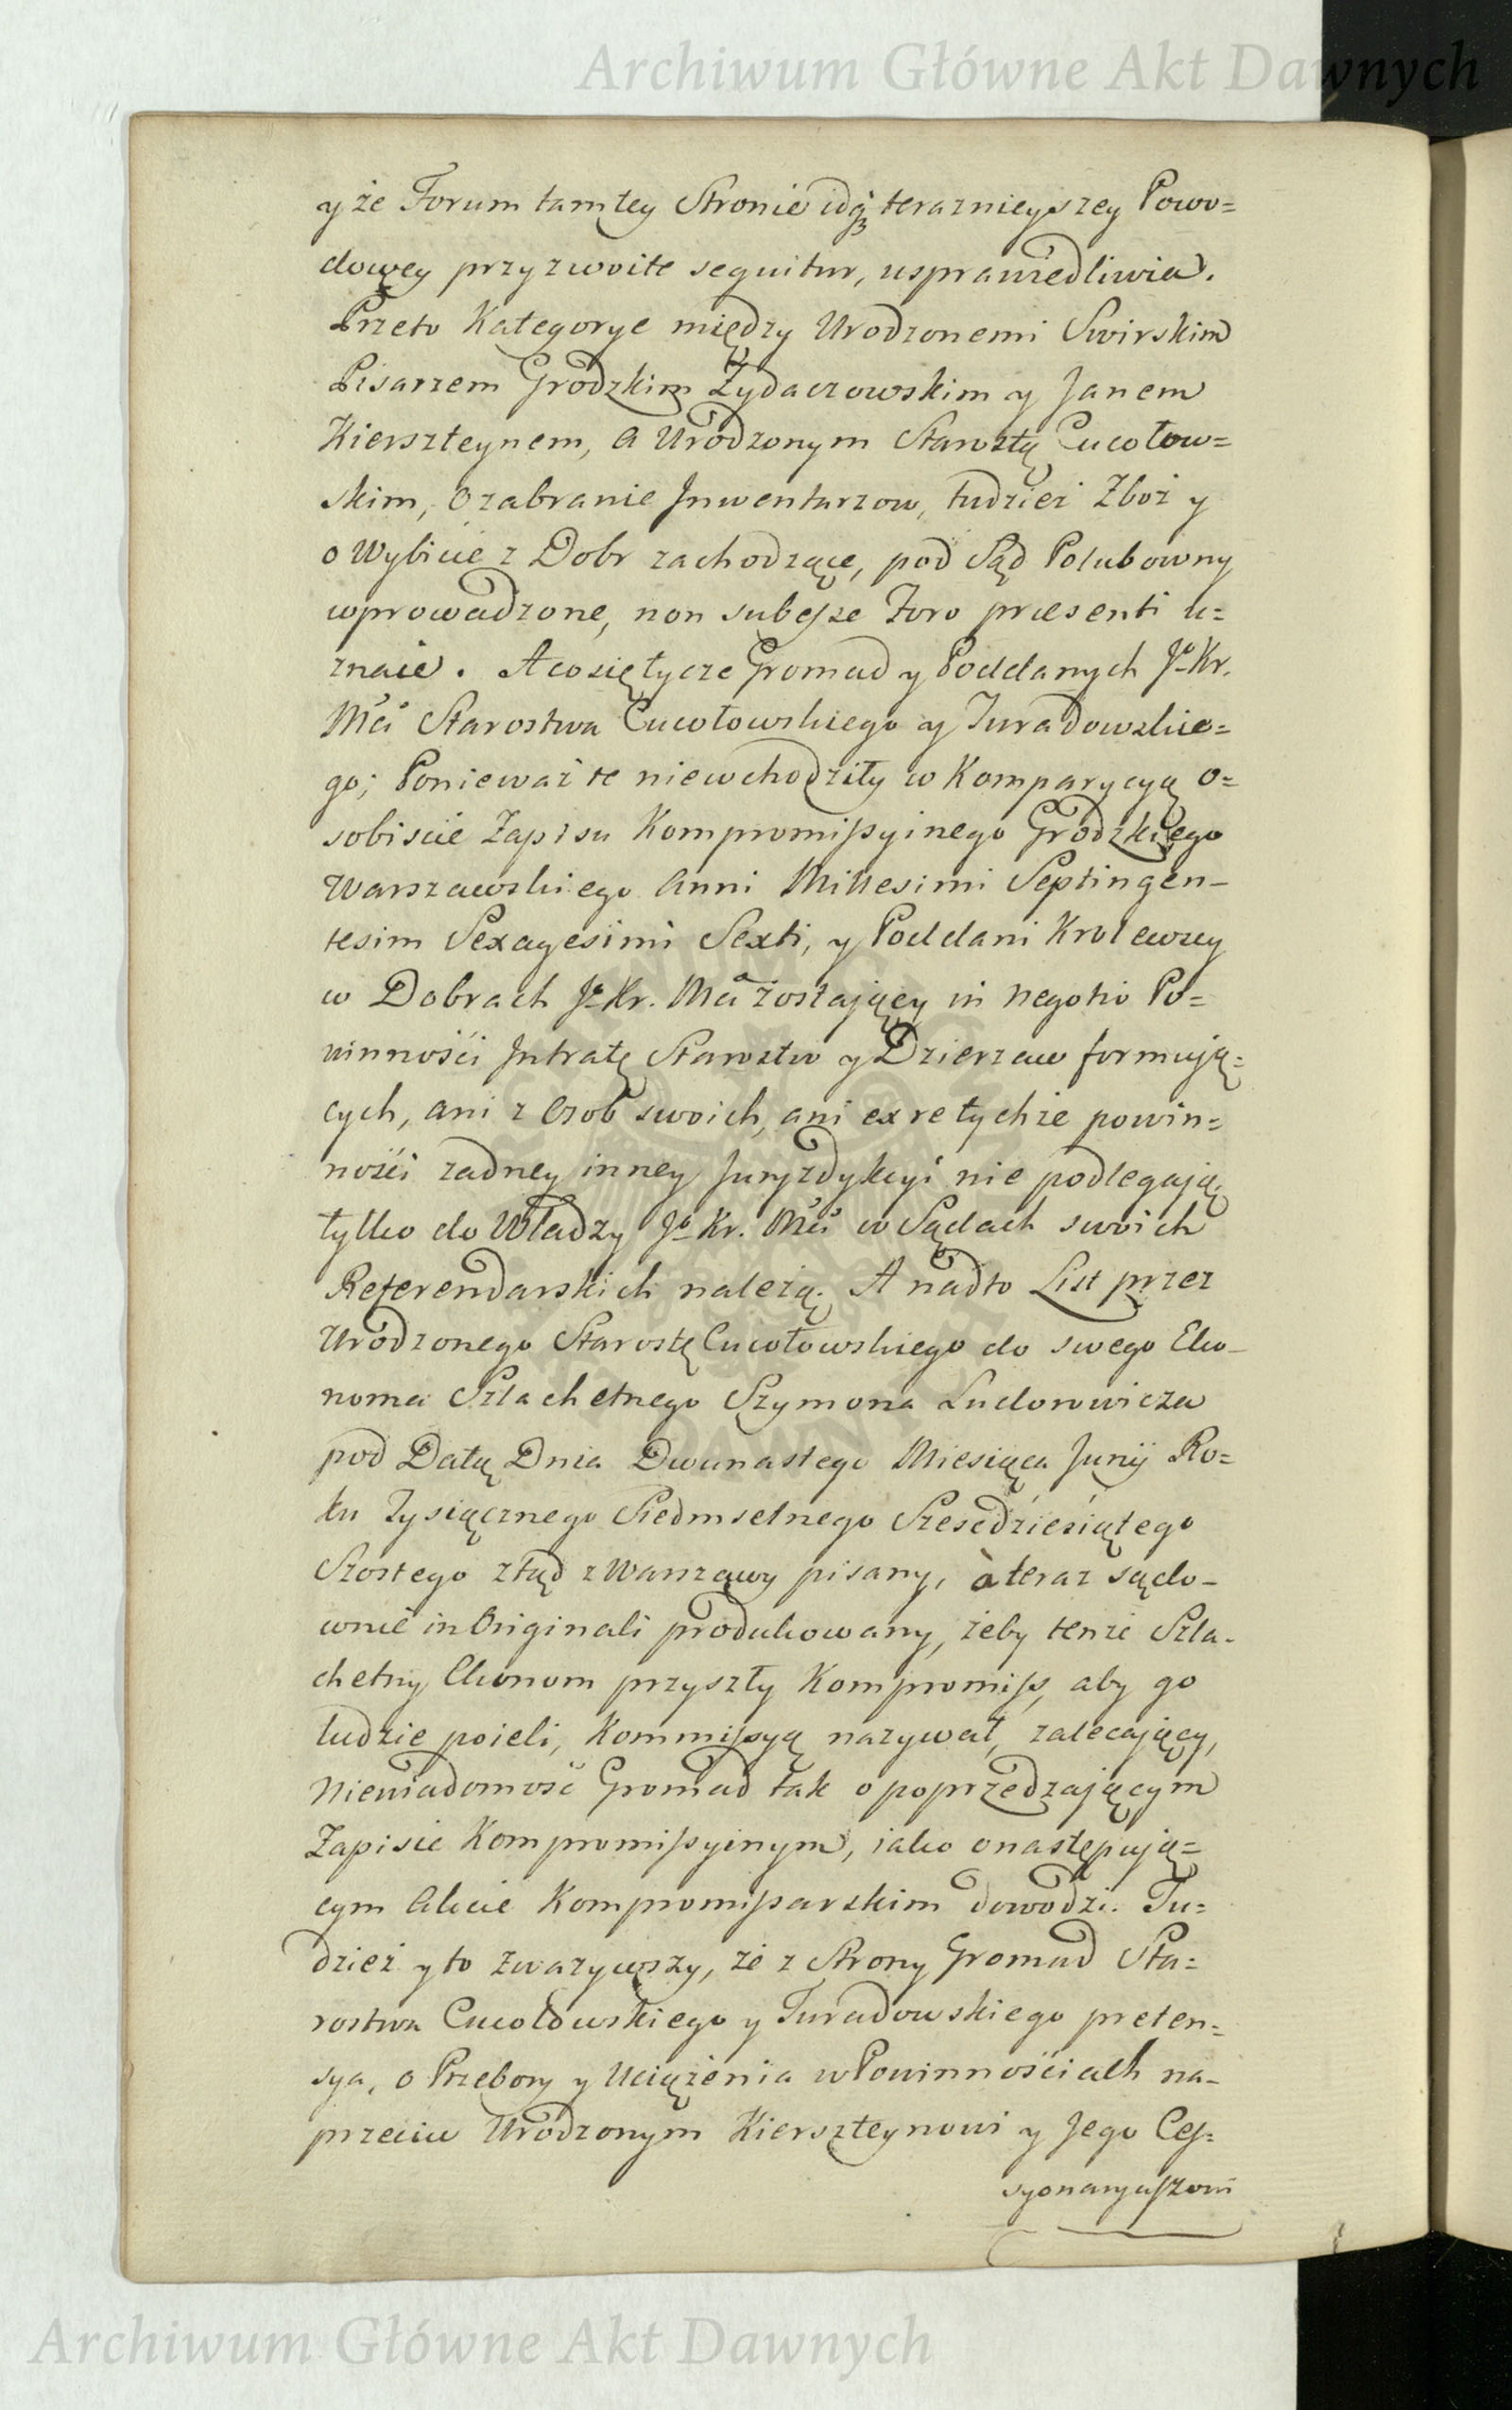 Archiwum Główne Akt Dawnych
y że Forum tamtey Stronie idąc teraznieyszey Powo=
dowey przyzwoite sequitur, usprawiedliwia.
Przeto Kategorye między Urodzonemi Swirskim
Pisarzem Grodzkim Żydaczowskim y Janem
Kierszteynem, a Urodzonym Starostą Cucołow=
skim, o zabranie Jnwentarzow, tudzież Zboż y
o Wybicie z Dobr zachodzące, pod Sąd Polubowny
wprowadzone, non subesse Foro præsenti u=
znaie. A co się tycze Gromad y Poddanych Jo Kr.
Mci Starostwa Cucołowskiego y Turadowskie=
go; Ponieważ te niewchodziły w Komparycyą o=
sobiscie Zapisu Kompromissyinego Grodzkiego
Warszawskiego Anni Millesimi Septingen-
tesim Sexagesimi Sexti, y Poddani Krolewscy
w Dobrach Jo Kr. Mci zostaiący in negotio Po=
winności Jntratę Starostw y Dzierzaw formują=
cych, ani z Osob swoich, ani ex re tychże powin=
ności zadney inney Juryzdykcyi nie podlegaią,
tylko do Władzy Jo Kr. Mci w Sądach swoich
Referendarskich należą. A nadto List przez
Urodzonego Starostę Cucołowskiego do swego Eko-
noma Szlachetnego Szymona Ludorowicza
pod Datą Dnia Dwunastego Miesiąca Junij Ro=
ku Tysiącznego Siedmsetnego Szescdziesiątego
Szostego ztąd z Warszawy pisany, à teraz sądo-
wnie in Originali produkowany, żeby tenże Szla-
chetny Ekonom przyszły Kompromiss, aby go
ludzie poieli, Kommissyą nazywał, zalecający,
Niewiadomość Gromad tak o poprzedzającym
Zapisie Kompromissyinym, iako o następują=
cym Akcie Kompromissarskim dowodzi. Tu=
dzież y to zważywszy, że z Strony Gromad Sta=
rostwa Cucołowskiego y Turadowskiego preten=
sya, o Przebory y Uciążenia w Powinnościach na-
przeciw Urodzonym Kierszteynowi y Jego Ces=
syonaryuszowi
Archiwum Główne Akt Dawnych